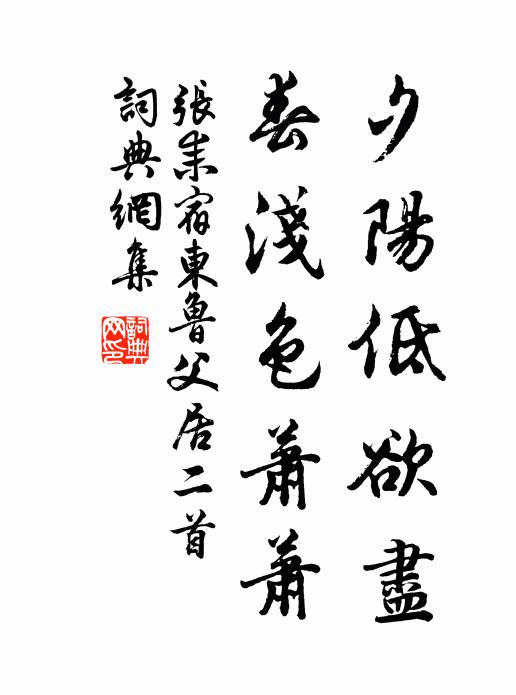 夕陽低欲盡
春淺色蕭蕭
張耒宿東魯父居二首
詞典網集
詞典網印